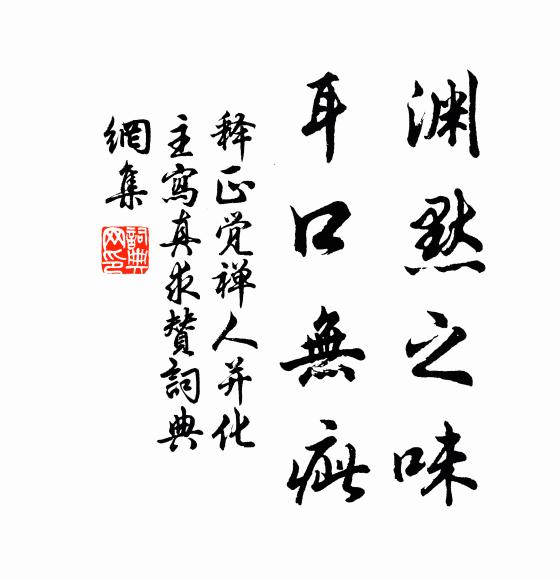 渊默之味
耳口無疵
释正觉禅人并化
主寫真求賛詞典
網集
詞典
网印